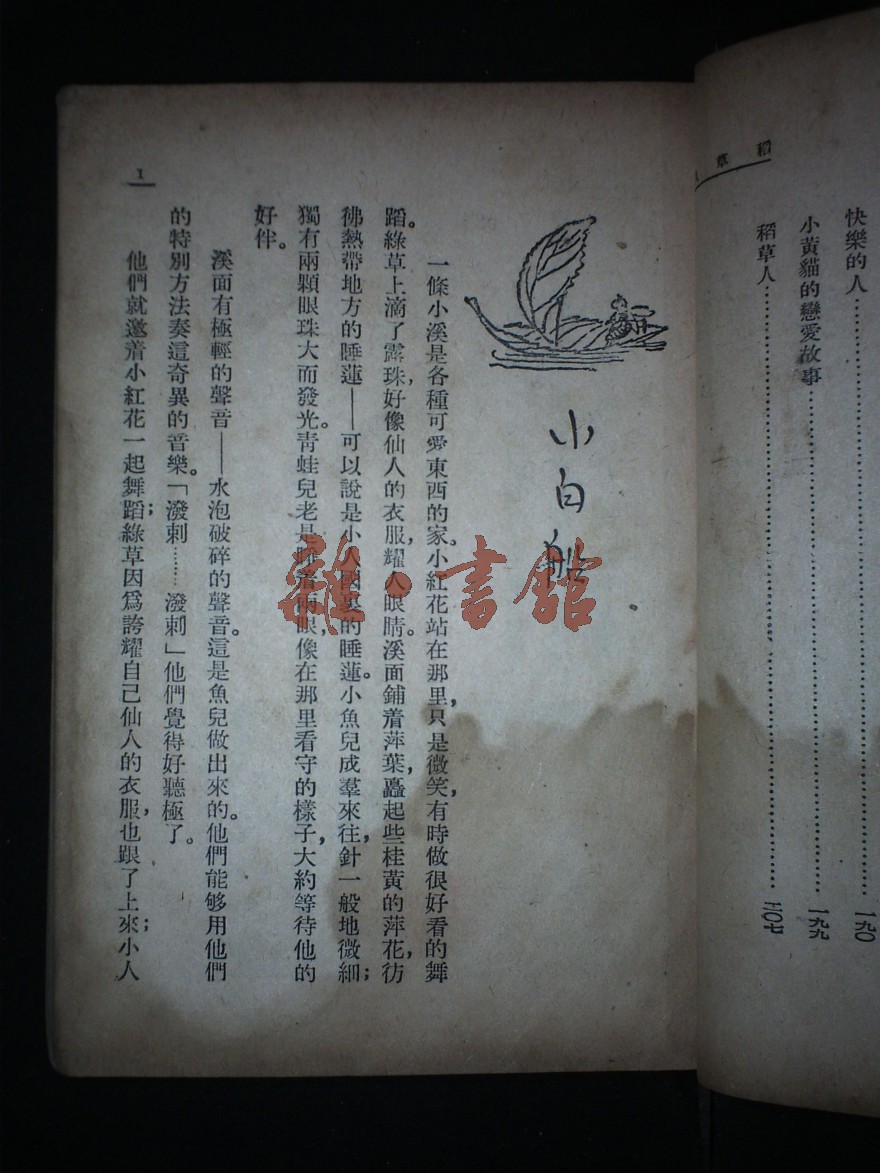 稻草
快樂的人 一九〇
小黃貓的戀愛故事 一九九
稻草人 二〇七
小白船
一條小溪是各種可愛東西的家。小紅花站在那里，只是微笑，有時做很好看的舞
蹈。綠草上滴了露珠，好像仙人的衣服，耀人眼睛。溪面鋪着萍葉，矗起些桂黃的萍花，彷
彿熱帶地方的睡蓮——可以說是小人國裏的睡蓮。小魚兒成羣來往，針一般地微細；
獨有兩顆眼珠大而發光。青蛙兒老是睜着兩眼，像在那里看守的樣子，大約等待他的
好伴。
溪面有極輕的聲音——水泡破碎的聲音。這是魚兒做出來的。他們能够用他們
的特別方法奏這奇異的音樂。「潑剌……潑剌」他們覺得好聽極了。
他們就邀着小紅花一起舞蹈；綠草因爲誇耀自己仙人的衣服，也跟了上來；小人
1
雜·書館